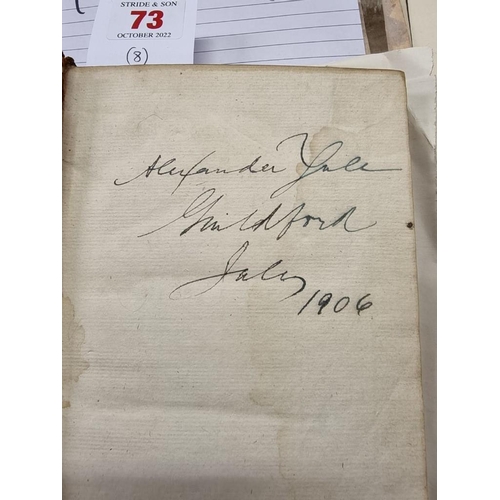 STRIDE & SON
73
OCTOBER 2022
(8)
Alexander Yule
Guildford
July
1906